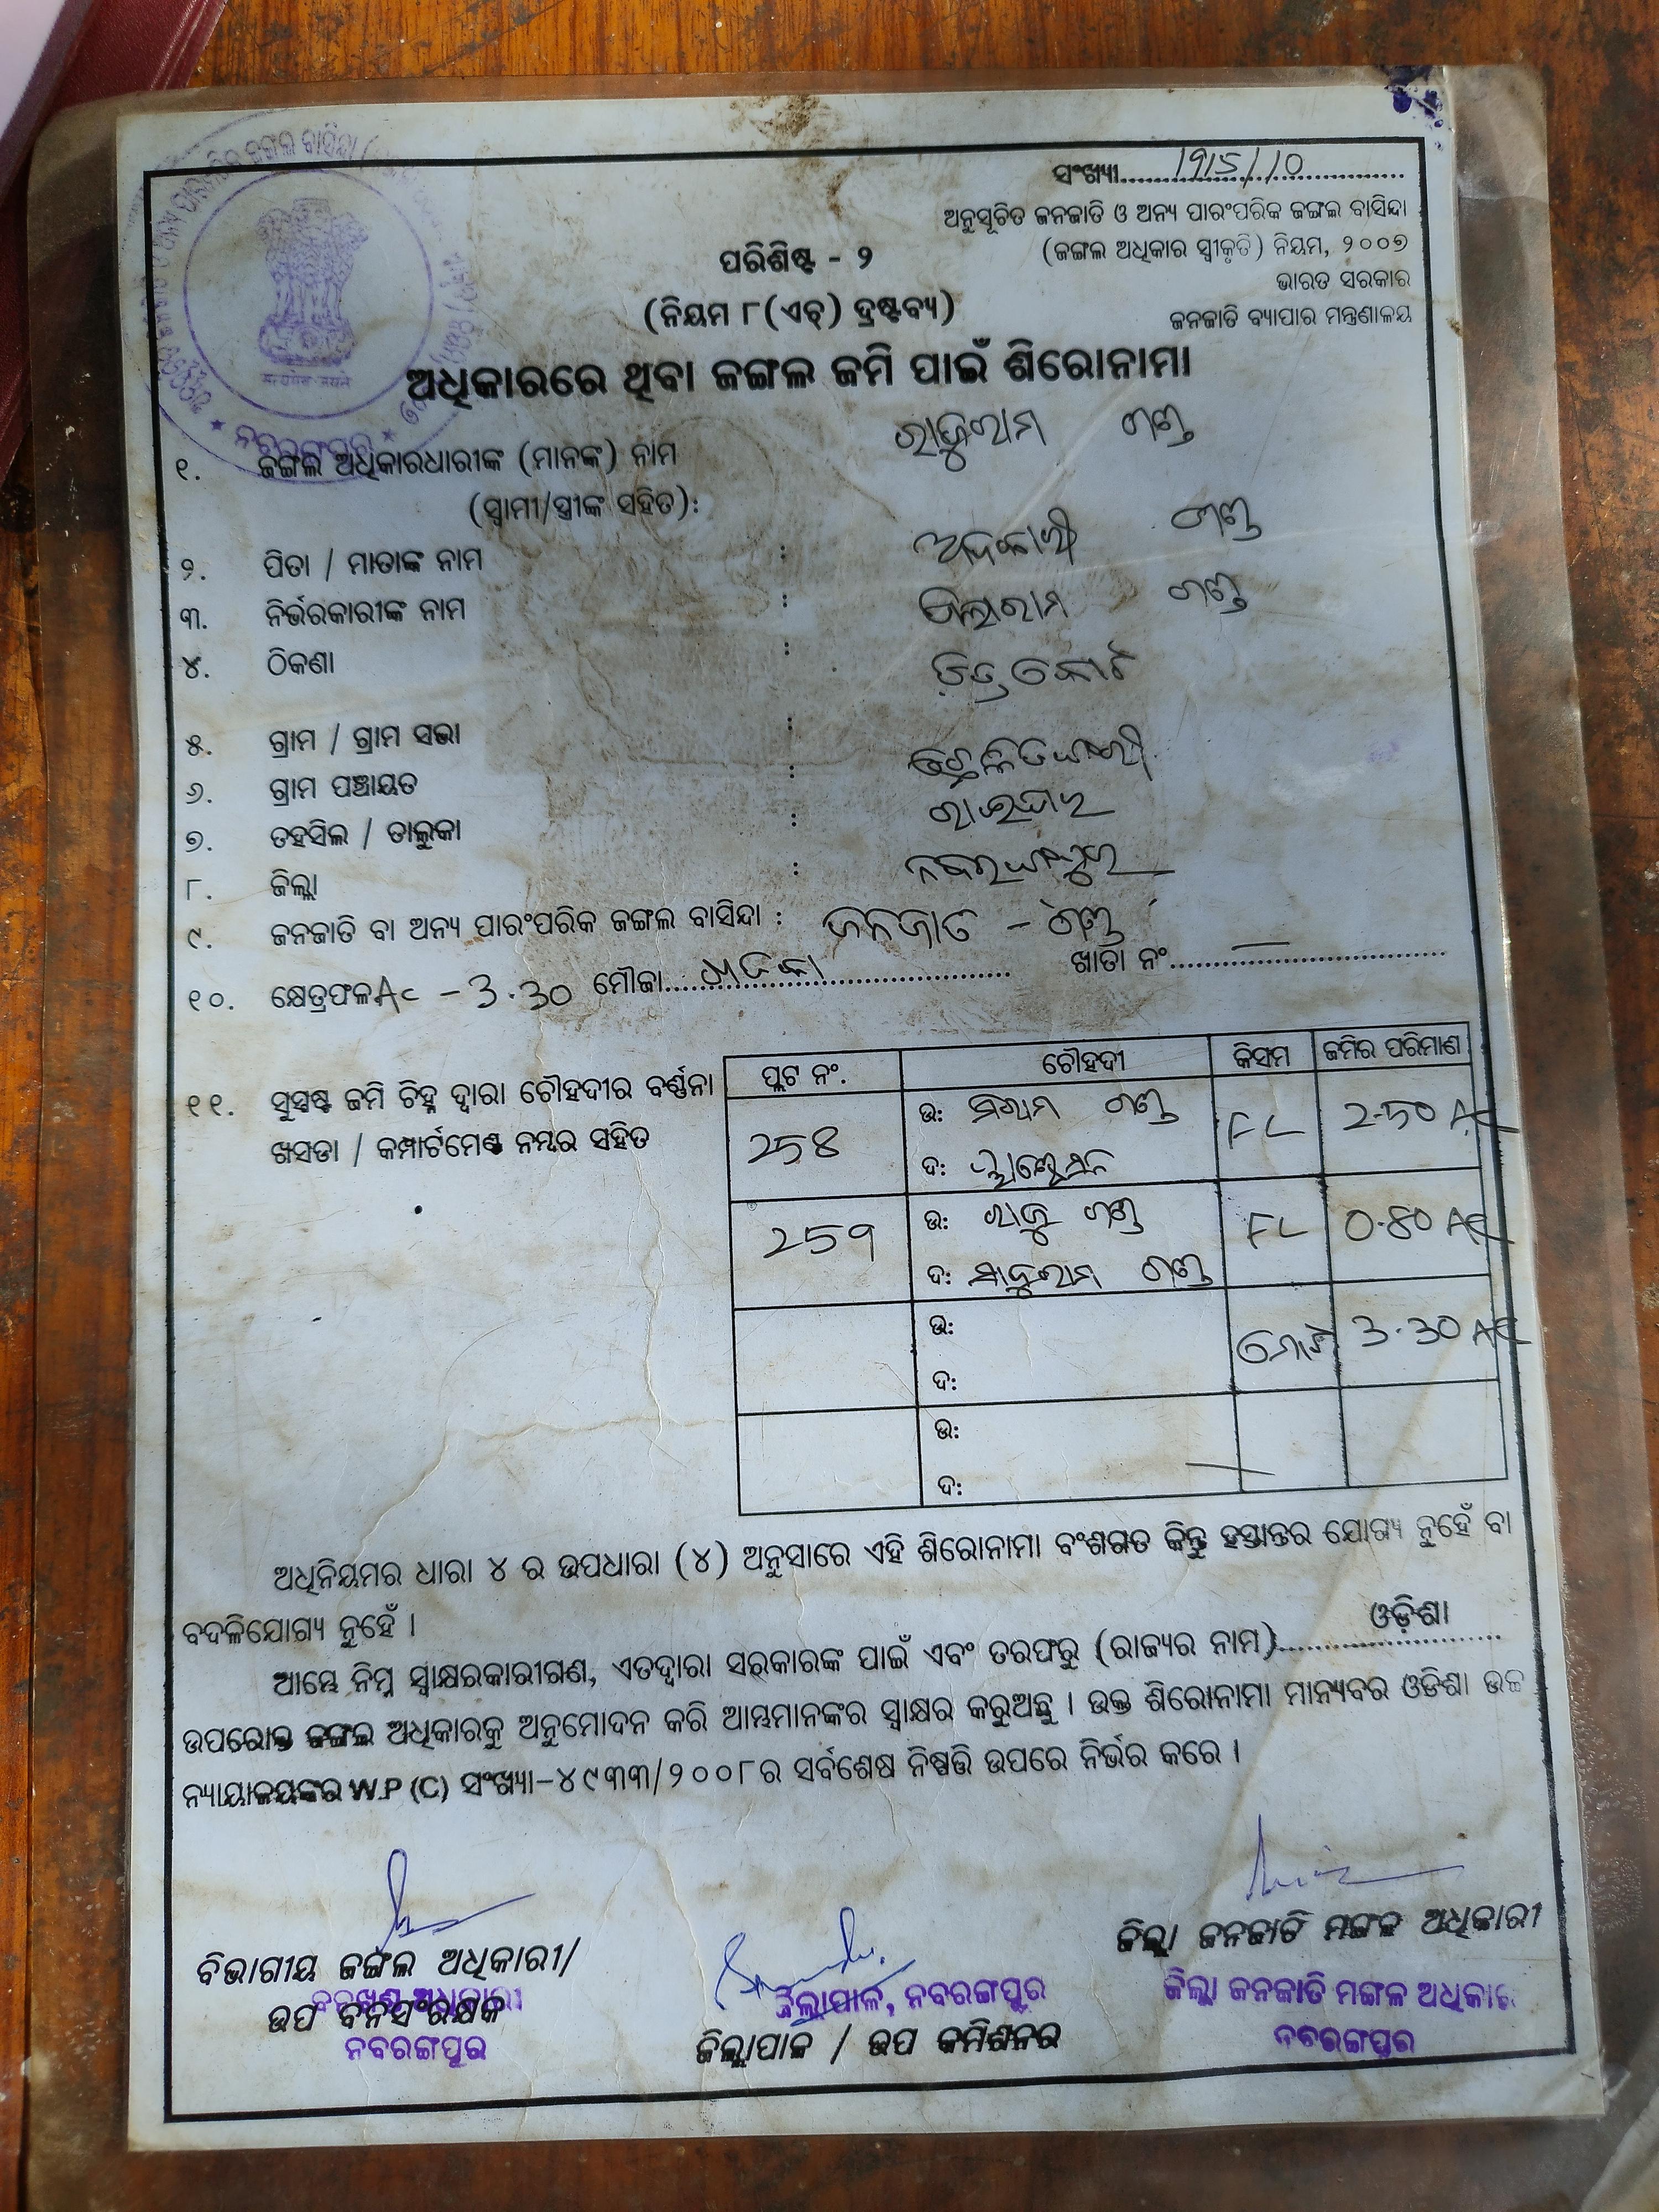 ସଂଖ୍ୟା 1915/10
ଅନୁସୂଚିତ ଜନଜାତି ଓ ଅନ୍ୟ ପାରଂପରିକ ଜଙ୍ଗଲ ବାସିନ୍ଦା
(ଜଙ୍ଗଲ ଅଧିକାର ସ୍ୱୀକୃତି) ନିୟମ, ୨୦୦୭
ଭାରତ ସରକାର
ଜନଜାତି ବ୍ୟାପାର ମନ୍ତ୍ରଣାଳୟ
ପରିଶିଷ୍ଟ - ୨
(ନିୟମ ୮(ଏଚ୍) ଦ୍ରଷ୍ଟବ୍ୟ)
ଅଧିକାରରେ ଥିବା ଜଙ୍ଗଲ ଜମି ପାଇଁ ଶିରୋନାମା
୧. ଜଙ୍ଗଲ ଅଧିକାରଧାରୀଙ୍କ (ମାନଙ୍କ) ନାମ ରାଜୁରାମ ଗଣ୍ଡ
(ସ୍ୱାମୀ/ସ୍ତ୍ରୀଙ୍କ ସହିତ):
୨. ପିତା / ମାତାଙ୍କ ନାମ : ଗଣ୍ଡ
୩. ନିର୍ଭରକାରୀଙ୍କ ନାମ : ଗଣ୍ଡ
୪. ଠିକଣା :
୫. ଗ୍ରାମ / ଗ୍ରାମ ସଭା :
୬. ଗ୍ରାମ ପଞ୍ଚାୟତ :
୭. ତହସିଲ / ତାଲୁକା : ରାଇଘର
୮. ଜିଲ୍ଲା : ନବରଙ୍ଗପୁର
୯. ଜନଜାତି ବା ଅନ୍ୟ ପାରଂପରିକ ଜଙ୍ଗଲ ବାସିନ୍ଦା : ଜନଜାତି - ଗଣ୍ଡ
୧୦. କ୍ଷେତ୍ରଫଳ Ac - 3.30 ମୌଜା ଖାତା ନଂ
୧୧. ସୁସ୍ପଷ୍ଟ ଜମି ଚିହ୍ନ ଦ୍ୱାରା ଚୌହଦୀର ବର୍ଣ୍ଣନା
ଖସଡା / କମ୍ପାର୍ଟମେଣ୍ଟ ନମ୍ବର ସହିତ
ପ୍ଲଟ ନଂ. ଚୌହଦୀ କିସମ ଜମିର ପରିମାଣ
258 ଉ: ଗଣ୍ଡ FL 2.50 AC
ଦ:
259 ଉ: ରାଜୁ ଗଣ୍ଡ FL 0.80 AC
ଦ: ଗଣ୍ଡ
ଉ: ମୋଟ 3.30 AC
ଦ:
ଉ:
ଦ:
ଅଧିନିୟମର ଧାରା ୪ ର ଉପଧାରା (୪) ଅନୁସାରେ ଏହି ଶିରୋନାମା ବଂଶଗତ କିନ୍ତୁ ହସ୍ତାନ୍ତର ଯୋଗ୍ୟ ନୁହେଁ ବା
ବଦଳିଯୋଗ୍ୟ ନୁହେଁ ।
ଆମ୍ଭେ ନିମ୍ନ ସ୍ୱାକ୍ଷରକାରୀଗଣ, ଏତଦ୍ୱାରା ସରକାରଙ୍କ ପାଇଁ ଏବଂ ତରଫରୁ (ରାଜ୍ୟର ନାମ) ଓଡ଼ିଶା
ଉପରୋକ୍ତ ଜଙ୍ଗଲ ଅଧିକାରକୁ ଅନୁମୋଦନ କରି ଆମ୍ଭମାନଙ୍କର ସ୍ୱାକ୍ଷର କରୁଅଛୁ । ଉକ୍ତ ଶିରୋନାମା ମାନ୍ୟବର ଓଡିଶା ଉଚ୍ଚ
ନ୍ୟାୟାଳୟଙ୍କର W.P (C) ସଂଖ୍ୟା-୪୯୩୩/୨୦୦୮ର ସର୍ବଶେଷ ନିଷ୍ପତ୍ତି ଉପରେ ନିର୍ଭର କରେ ।
ବିଭାଗୀୟ ଜଙ୍ଗଲ ଅଧିକାରୀ/
ଉପ ବନସଂରକ୍ଷକ
ନବରଙ୍ଗପୁର
ଜିଲ୍ଲାପାଳ, ନବରଙ୍ଗପୁର
ଜିଲ୍ଲାପାଳ / ଉପ କମିଶନର
ଜିଲ୍ଲା ଜନଜାତି ମଙ୍ଗଳ ଅଧିକାରୀ
ଜିଲ୍ଲା ଜନଜାତି ମଙ୍ଗଳ ଅଧିକାରୀ
ନବରଙ୍ଗପୁର